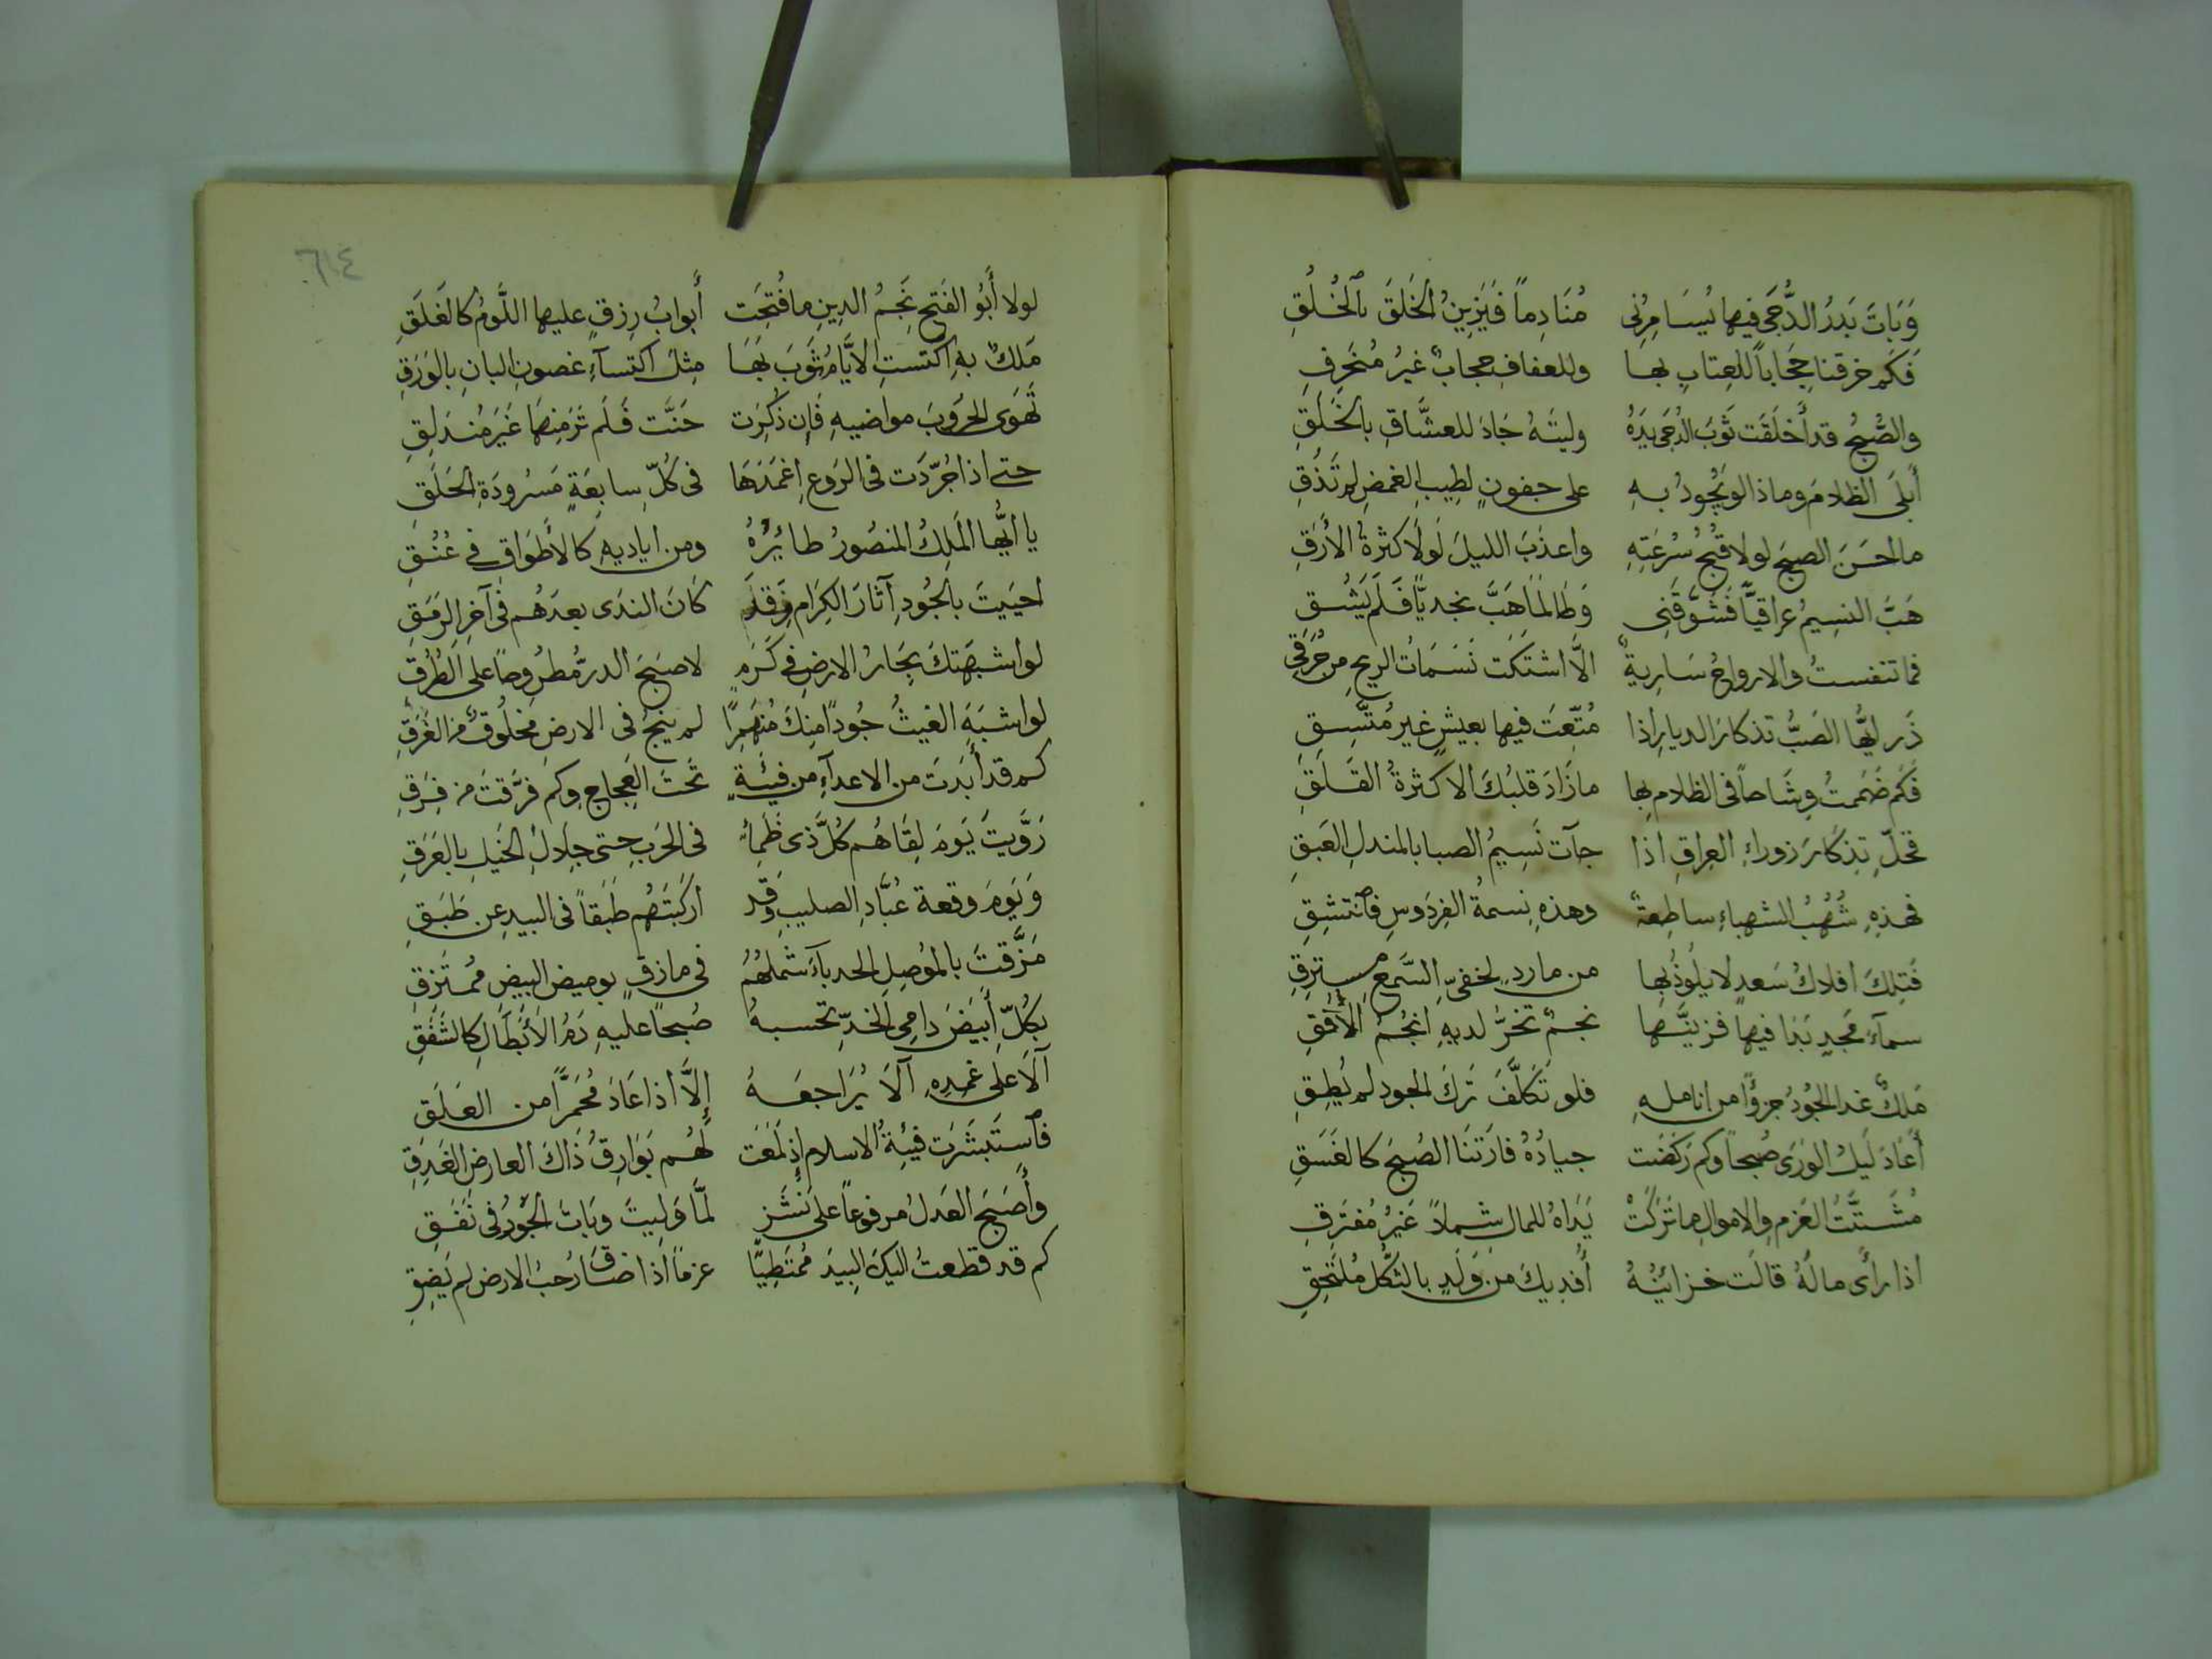 وَبَاتَ بَدرُ الدُّجَى فيها يُسَامِرُنِى مُنَادِماً فَيَزِينُ الخَلقَ بالخُلُقِ
فَكَم خرقنا حِجَاباً للعِتابِ بها وللعفافِ حجابٌ غيرُ مُنخَرِقِ
والصُّبحُ قد أَخلَقَت ثَوبَ الدُجَى يَدُهُ وليتَهُ جَادَ للعشَّاقِ بالخَلَقِ
أَبلَى الظلامَ وماذا لو يَجُودُ به على جفونٍ لطِيبِ الغمضِ لم تَذُقِ
ما احسَنَ الصبحَ لولا قبحُ سُرعَتِهِ واعذبَ الليلَ لَولا كثرةُ الأَرَقِ
هَبَّ النسِيمُ عراقيّاً فَشَوَّقَنِى وَطَالمَا هَبَّ نجديّاً فَلَم يَشُق
فما تنفستُ والارواحُ سَارِيةٌ الَّا اشتَكَت نَسَمَاتُ الريحِ من حُرَقِى
ذَر ايُّها الصَبُّ تذكارَ الديارِ إذا مُتِّعتَ فيها بعيشٍ غيرِ مُتَّسِقِ
فَكَم ضَمَمتُ وِشَاحاً فى الظلامِ بها مازَادَ قلبُكَ الا كثرةَ القَلَقِ
فخلِّ تِذكَارَ زوراءِ العِراقِ اذا جآت نَسِيمُ الصبا بالمندلِ العَبقِ
فهذِهِ شُهُبُ الشهباءِ ساطِعةٌ وهذهِ نسمةُ الفِردَوسِ فانتشِقِ
فَتِلكَ افلاكُ سَعدٍ لا يلُوذُ بها من ماردٍ لخفىِّ السَّمعِ مسترقِ
سمآءُ مَجدٍ بَدَا فيها فزينَّها نجمٌ تخرُّ لديهِ انجُمُ الأفُقِ
مَلكٌ غدا الجُودُ جزؤاً من اناملهِ فلو تَكَلَّفَ تَركَ الجود لم يُطِقِ
أعَادَ لَيلُ الوَرَى صُبحاً وكم رَكَضَت جيادُهُ فارَتنَا الصُبحَ كالغَسَقِ
مُشَتَّتُ العَزمِ والاموالِ ما تَرَكَتْ يَدَاهُ للمال شملاً غَيرَ مُفترَقِ
اذا رأى مالَهُ قالَت خزائنُهُ أُفدِيكَ من وَلَدٍ بالثكُل مُلتَحِقِ
٦١٤
لولا أَبُو الفَتحِ نجمُ الدينِ ما فُتِحَت أَبوابُ رِزقٍ عليها اللَّومُ كالغَلَقِ
مَلكٌ بهِ اكتستِ الايَّامُ ثَوبَ بَهَا مِثلَ اكتسآءِ غصونِ البانِ بالوَرَقِ
تَهوَى الحروبَ مواضيهِ فَإن ذُكِرَت حَنَّت فَلَم تَرَ منها غَيرَ مُندَلِقِ
حتى اذا جُرّدَت فى الرَوعِ إغمَدَهَا فى كُلّ سابِغةٍ مَسرُودَةِ الحَلَقِ
يا ايُّها المَلِكُ المنصُورُ طائرُهُ ومن اياديهِ كالأَطوَاقِ فى عُنُقِ
احيَيتَ بالجُودِ آثارَ الكِرَام وقد كَانَ الندَى بعدَهُم فى آخرِ الرَّمَقِ
لو اشبهَتكَ بِحَارُ الارضِ فى كَرَمٍ لاصبحَ الدرُّ مُطرُوحاً على الطُرُقِ
لو اشبَهَ الغيثُ جُوداً منكَ مُنهَمِراً لم ينجُ فى الارضِ مخلُوقٌ من الغَرَقِ
كم قد أَبَدتَ من الاعدآءِ من فِئَةٍ تَحتَ العَجاجِ وكم فرَّقتَ من فِرَقِ
رَوَّيتَ يَومَ لِقَاهُم كُلَّ ذى ظَمِأٍ فى الحَربِ حتى جِلالِ الخَيلِ بالعَرَقِ
وَيَومَ وقعة عُبَّادِ الصليبِ وَقَد اركَبتَهُم طَبَقاً فى البيدِ عن طَبَقِ
مَزَّقتَ بالمُوصِلِ الحدبآءِ شَملَهُمُ فى مازقٍ بوميضِ البيضِ مُمتَزقِ
بكُلِّ أَبيَضَ دامِى الخدِّ تحسبهُ صُبحاً عليهِ دَمُ الأَبطَالِ كالشَّفَقِ
آلَا على غمدِهِ آلَا يُرَاجعَهُ إِلَّا أذا عَادَ مُحَمَرَّاً من العَلَقِ
فاستَبشَرَت فيئةُ الاسلامِ إذ لَمَعَت لهُم بَوَارقُ ذَاكَ العارِضِ الغَدِقِ
وأَصبحَ العَدلُ مرفوعاً على نَشَزٍ لمَّا وَلِيتَ وبَاتَ الجَورُ فى نَفَقِ
كم قد قطعتُ اليكَ البِيدَ مُمتَطِيًّا عزماً اذا ضاقَ رُحبُ الارضِ لم يَضِقِ